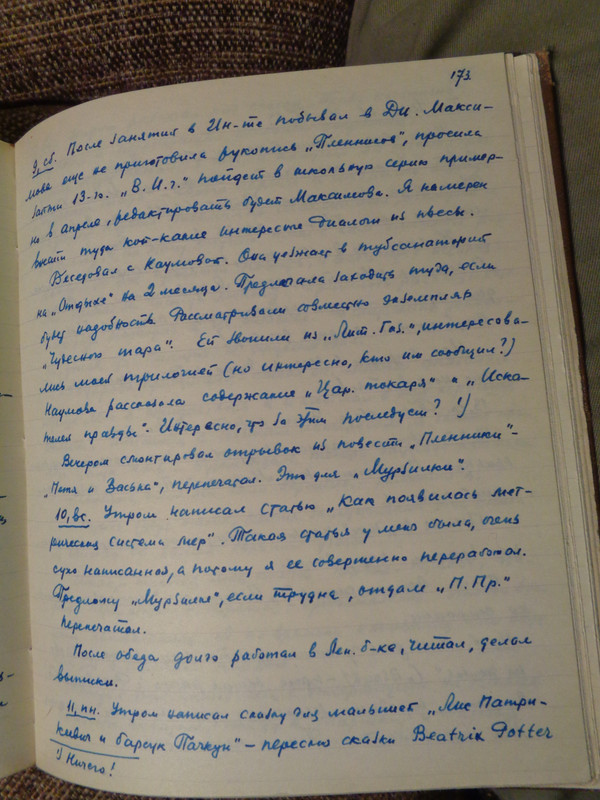 173.
9, сб. После занятий в Ин-те побывал в Ди. Макси-
мова еще не приготовила рукопись „Пленников", просила
зайти 13-го. „В. И. г." пойдет в школьную серию пример-
но в апреле, редактировать будет Максимова. Я намерен
внести туда кой-какие интересные диалоги из пьесы.
Беседовал с Наумовой. Она уезжает в тубсанаторий
на „Отдыхе" на 2 месяца. Предлагала заходить туда, если
будет надобность. Рассматривали совместно экземпляр
„Чудесного шара". Ей звонили из „Лит. Газ.", интересова-
лись моей трилогией (но интересно, кто им сообщил?)
Наумова рассказала содержание „Цар. токаря" и „Иска-
телей правды". Интересно, что за этим последует? ¹)
Вечером смонтировал отрывок из повести „Пленники" -
„Петя и Васька", перепечатал. Это для „Мурзилки".
10, вс. Утром написал статью „Как появилась мет-
рическая система мер". Такая статья у меня была, очень
сухо написанная, а потому я ее совершенно переработал.
Предложу „Мурзилке", если трудна, отдам „П. Пр."
Перепечатал.
После обеда долго работал в Лен. б-ка, читал, делал
выписки.
11, пн. Утром написал сказку для малышей „Лис Патри-
кеевич и барсук Пачкун" - пересказ сказки Beatrix Potter
¹) Ничего!